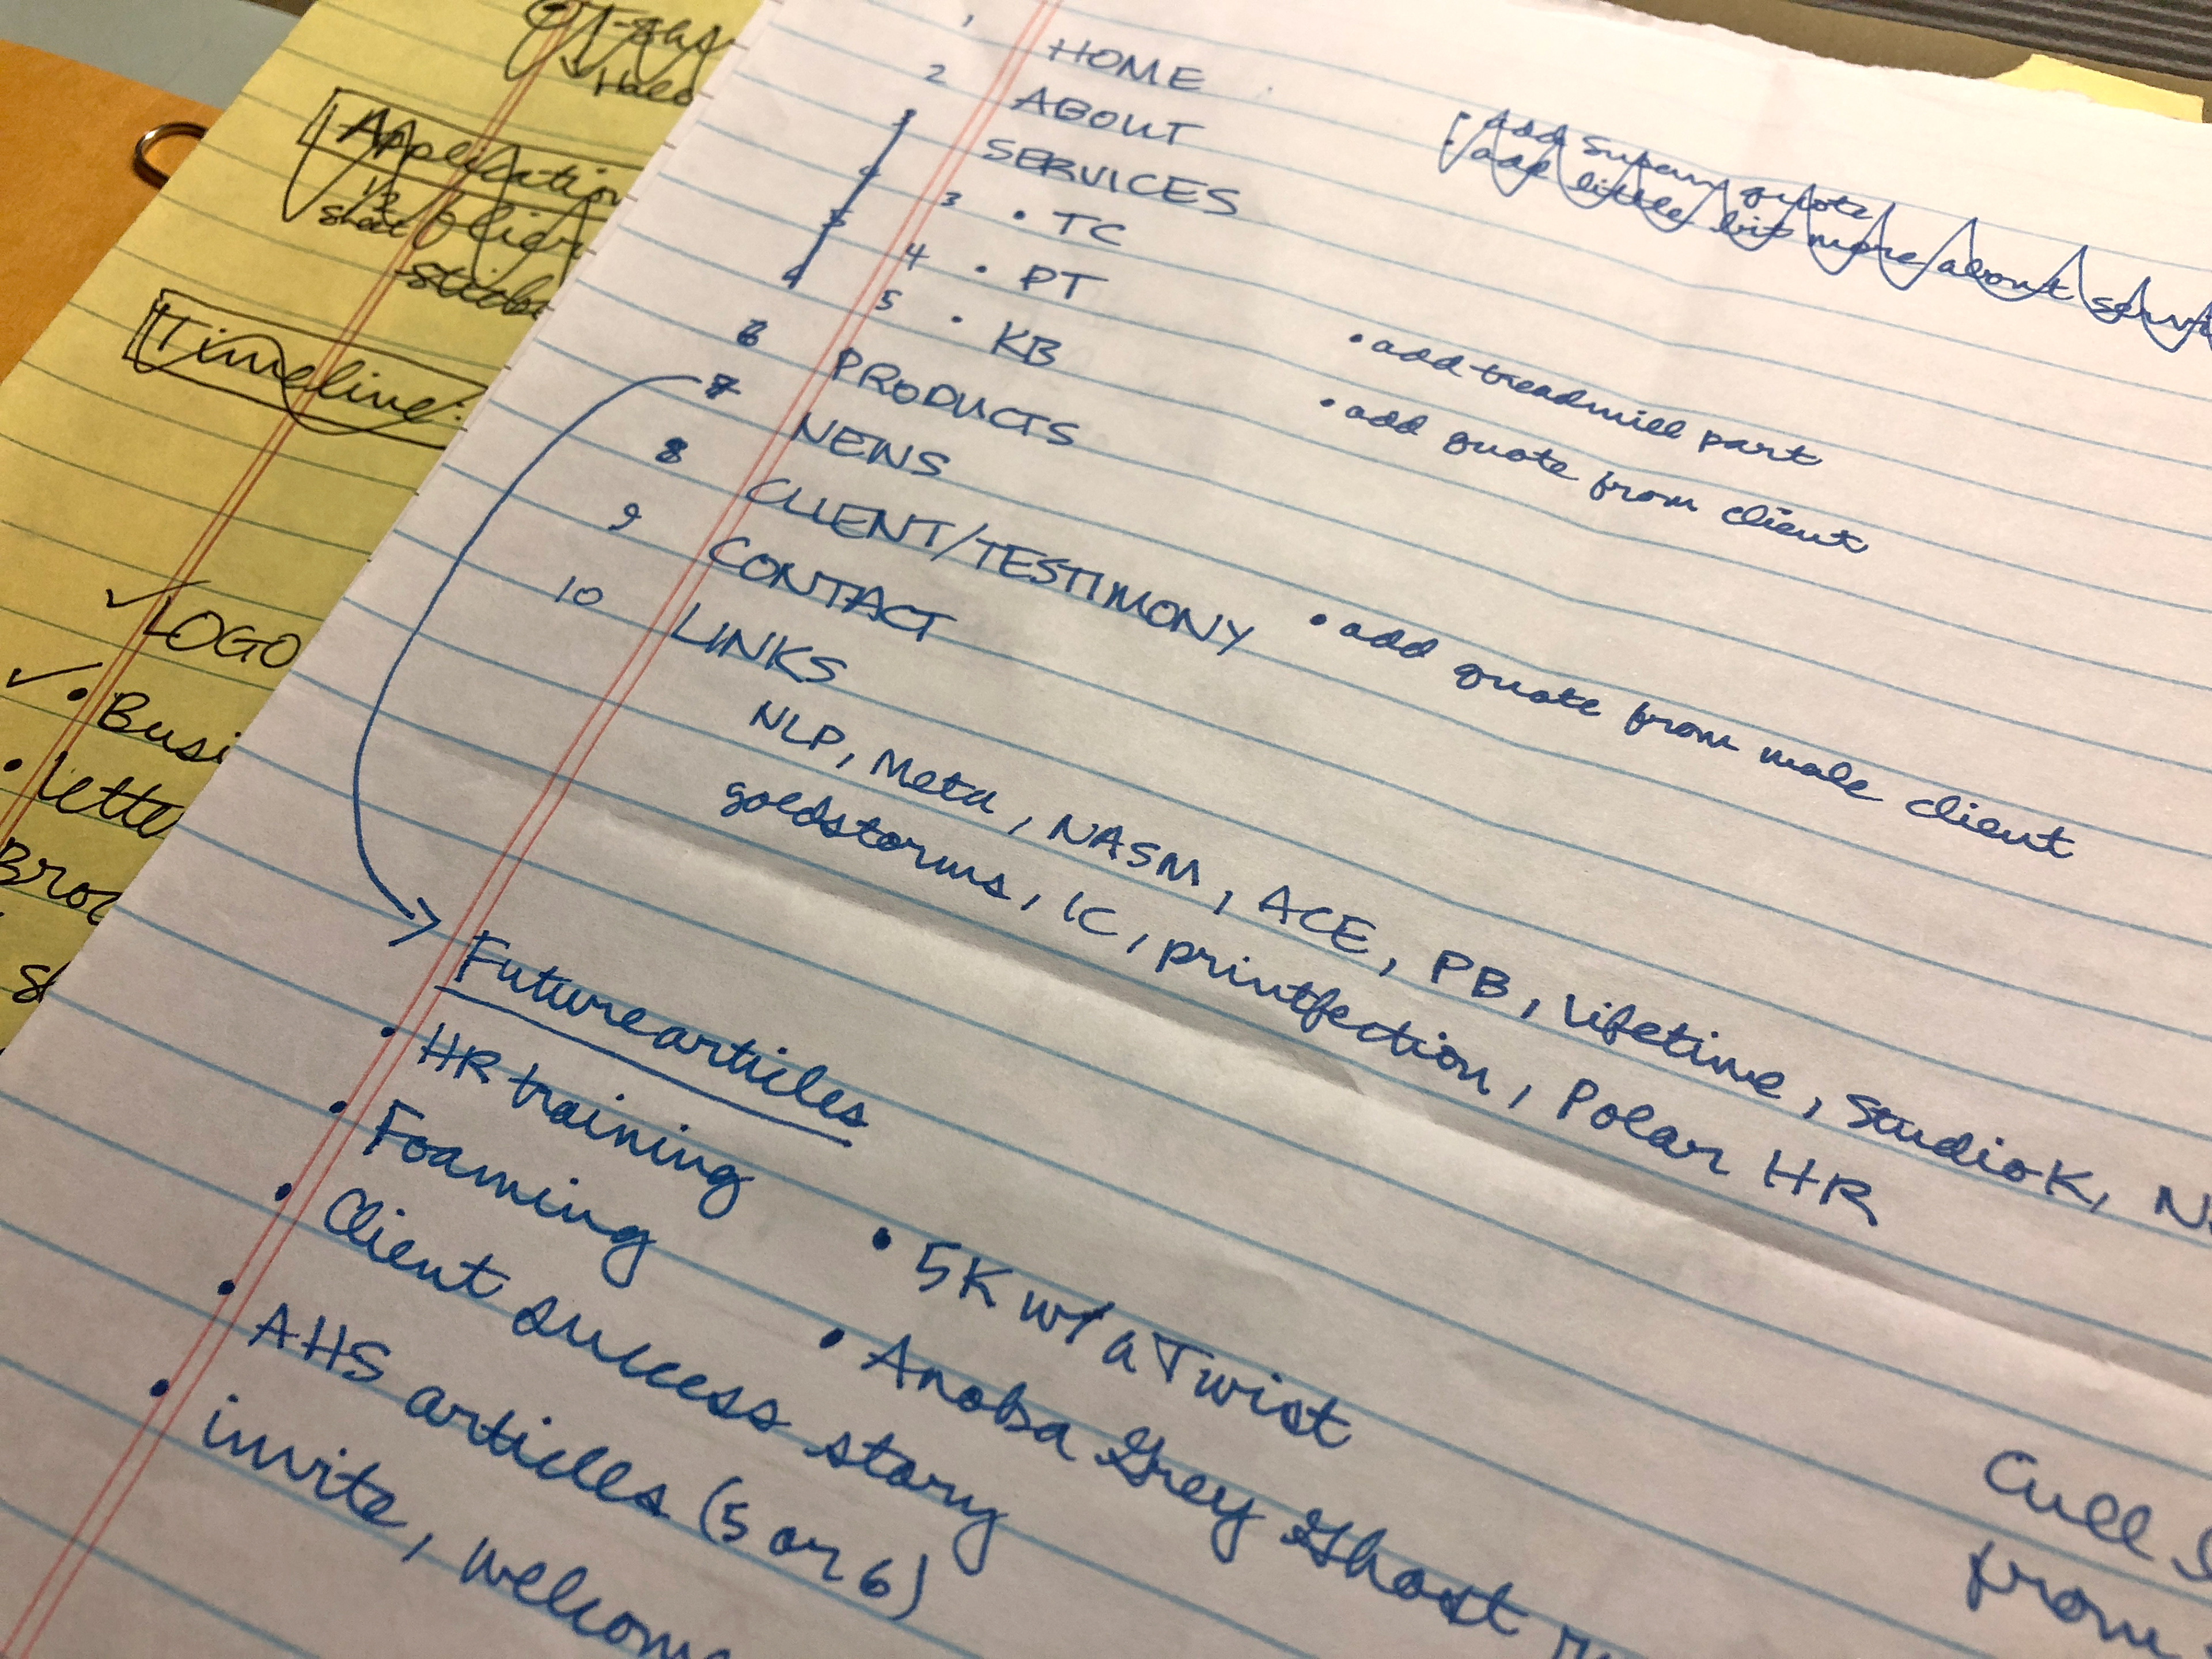 1 HOME
2 ABOUT
SERVICES
3 • TC
4 • PT
5 • KB
6 PRODUCTS
7 NEWS
8 CLIENT/TESTIMONY
9 CONTACT
10 LINKS
NLP, Meta, NASM, ACE, PB, Lifetime, StudioK,
goldstorms, IC, printfection, Polar HR
• add Susan quote
• add little bit more about
• add treadmill part
• add quote from client
• add quote from male client
Future articles
• HR training
• Foaming
• Client success story
• AHS articles (5 or 6)
• invite, welcome
• 5K w/ a Twist
• Anoba Grey Ghost
Cull
from
Application
1/2
sheet
Timeline:
✓ LOGO
✓ • Busi
• lette
Broc